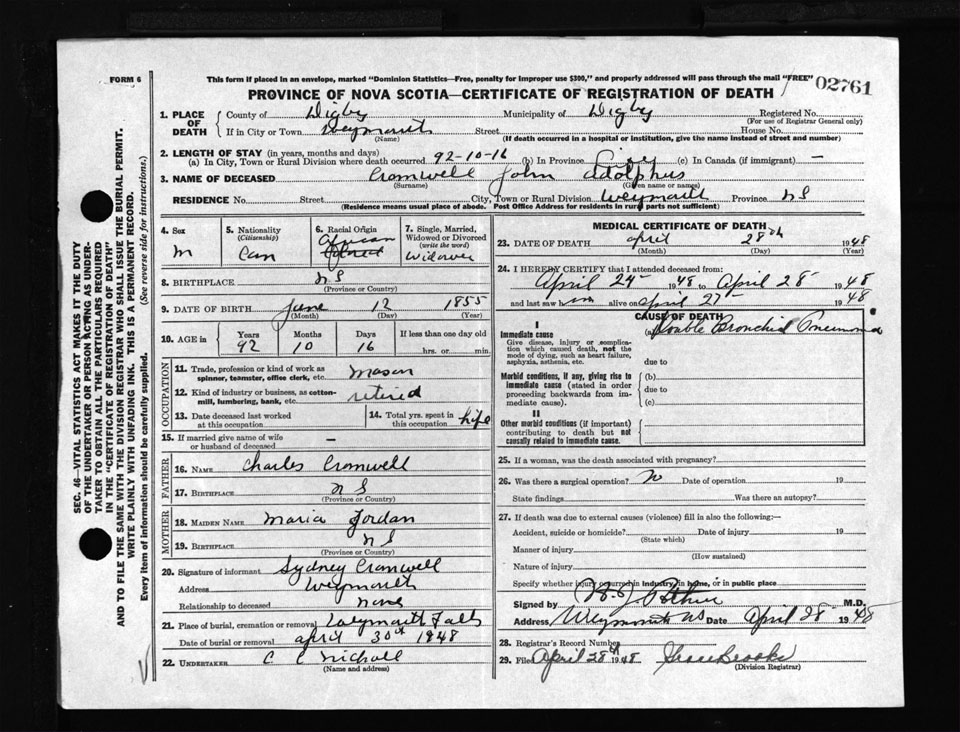 FORM 6
This form if placed in an envelope, marked "Dominion Statistics—Free, penalty for improper use $300," and properly addressed will pass through the mail "FREE"
02761
PROVINCE OF NOVA SCOTIA—CERTIFICATE OF REGISTRATION OF DEATH
1. PLACE OF DEATH
County of Digby Municipality of Digby Registered No.
(For use of Registrar General only)
If in City or Town Weymouth Street House No.
(Name) (If death occurred in a hospital or institution, give the name instead of street and number)
2. LENGTH OF STAY (in years, months and days)
(a) In City, Town or Rural Division where death occurred 92-10-16 (b) In Province (c) In Canada (if immigrant) —
3. NAME OF DECEASED Cromwell John Adolphus
(Surname) (Given name or names)
RESIDENCE No. Street City, Town or Rural Division Weymouth Province NS
(Residence means usual place of abode. Post Office Address for residents in rural parts not sufficient)
4. Sex
M
5. Nationality
(Citizenship)
Can
6. Racial Origin
African
7. Single, Married, Widowed or Divorced
(write the word)
Widower
8. BIRTHPLACE NS
(Province or Country)
9. DATE OF BIRTH June 12 1855
(Month) (Day) (Year)
10. AGE in
Years Months Days If less than one day old
92 10 16 hrs. or min.
OCCUPATION
11. Trade, profession or kind of work as
spinner, teamster, office clerk, etc. Mason
12. Kind of industry or business, as cotton-
mill, lumbering, bank, etc. retired
13. Date deceased last worked
at this occupation
14. Total yrs. spent in
this occupation Life
15. If married give name of wife
or husband of deceased —
FATHER
16. NAME Charles Cromwell
17. BIRTHPLACE NS
(Province or Country)
MOTHER
18. MAIDEN NAME Maria Jordan
19. BIRTHPLACE NS
(Province or Country)
20. Signature of informant Sydney Cromwell
Address Weymouth
Relationship to deceased none
21. Place of burial, cremation or removal Weymouth Falls
Date of burial or removal April 30th 1948
22. UNDERTAKER C C Nicholl
(Name and address)
MEDICAL CERTIFICATE OF DEATH
23. DATE OF DEATH April 28th 1948
(Month) (Day) (Year)
24. I HEREBY CERTIFY that I attended deceased from:
April 24 1948 to April 28 1948
and last saw him alive on April 27 1948
CAUSE OF DEATH
I
Immediate cause (a) Double Bronchial Pneumonia
Give disease, injury or complica-
tion which caused death, not the
mode of dying, such as heart failure,
asphyxia, asthenia, etc.
due to
Morbid conditions, if any, giving rise to
immediate cause (stated in order
proceeding backwards from im-
mediate cause).
(b)
due to
(c)
II
Other morbid conditions (if important)
contributing to death but not
causally related to immediate cause.
25. If a woman, was the death associated with pregnancy?
26. Was there a surgical operation? No Date of operation 19
State findings Was there an autopsy?
27. If death was due to external causes (violence) fill in also the following:—
Accident, suicide or homicide? Date of injury 19
(State which)
Manner of injury
(How sustained)
Nature of injury
Specify whether injury occurred in industry, in home, or in public place
Signed by M.D.
Address Weymouth NS Date April 28 1948
28. Registrar's Record Number
29. Filed April 28th 1948 Brooks
(Division Registrar)
SEC. 46—VITAL STATISTICS ACT MAKES IT THE DUTY
OF THE UNDERTAKER OR PERSON ACTING AS UNDER-
TAKER TO OBTAIN ALL THE PARTICULARS REQUIRED
IN THE "CERTIFICATE OF REGISTRATION OF DEATH"
AND TO FILE THE SAME WITH THE DIVISION REGISTRAR WHO SHALL ISSUE THE BURIAL PERMIT.
WRITE PLAINLY WITH UNFADING INK. THIS IS A PERMANENT RECORD.
Every item of information should be carefully supplied. (See reverse side for instructions.)